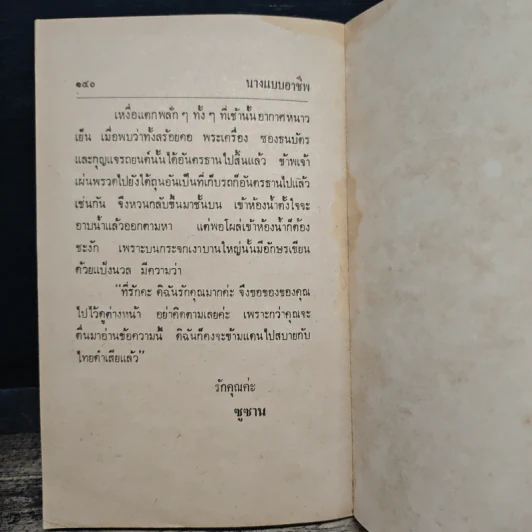 ๑๔๐ นางแบบอาชีพ
เหงื่อแตกพลั่ก ๆ ทั้ง ๆ ที่เช้านั้นอากาศหนาว
เย็น เมื่อพบว่าทั้งสร้อยคอ พระเครื่อง ซองธนบัตร
และกุญแจรถยนต์นั้นได้อันตรธานไปสิ้นแล้ว ข้าพเจ้า
เผ่นพรวดไปยังใต้ถุนอันเป็นที่เก็บรถก็อันตรธานไปแล้ว
เช่นกัน จึงหวนกลับขึ้นมาชั้นบน เข้าห้องน้ำตั้งใจจะ
อาบน้ำแล้วออกตามหา แต่พอโผล่เข้าห้องน้ำก็ต้อง
ชะงัก เพราะบนกระจกเงาบานใหญ่นั้นมีอักษรเขียน
ด้วยแป้งนวล มีความว่า
"ที่รักคะ ดิฉันรักคุณมากค่ะ จึงขอของของคุณ
ไปไว้ดูต่างหน้า อย่าคิดตามเลยค่ะ เพราะกว่าคุณจะ
ตื่นมาอ่านข้อความนี้ ดิฉันก็คงจะข้ามแดนไปสบายกับ
ไทยดำเสียแล้ว"
รักคุณค่ะ
ซูซาน